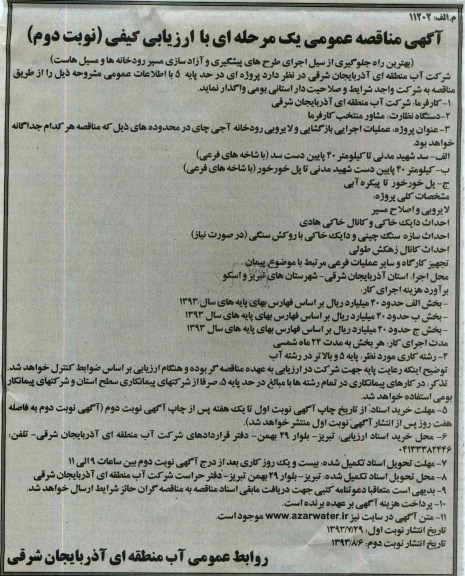 م.الف: ۱۱۲۰۲
آگهی مناقصه عمومی یک مرحله ای با ارزیابی کیفی (نوبت دوم)
(بهترین راه جلوگیری از سیل اجرای طرح های پیشگیری و آزاد سازی مسیر رودخانه ها و مسیل هاست)
شرکت آب منطقه ای آذربایجان شرقی در نظر دارد پروژه ای در حد پایه ۵ با اطلاعات عمومی مشروحه ذیل را از طریق
مناقصه به شرکت واجد شرایط و صلاحیت دار استانی بومی واگذار نماید.
۱-کارفرما: شرکت آب منطقه ای آذربایجان شرقی
۲-دستگاه نظارت: مشاور منتخب کارفرما
۳-عنوان پروژه: عملیات اجرایی بازگشایی و لایروبی رودخانه آجی چای در محدوده های ذیل که مناقصه هر کدام جداگانه
خواهد بود.
الف- سد شهید مدنی تا کیلومتر ۴۰ پایین دست سد (با شاخه های فرعی)
ب- کیلومتر ۴۰ پایین دست شهید مدنی تا پل خورخور (با شاخه های فرعی)
ج- پل خورخور تا پیکره آبی
مشخصات کلی پروژه:
لایروبی و اصلاح مسیر
احداث دایک خاکی و کانال خاکی هادی
احداث سازه سنگ چینی و دایک خاکی با روکش سنگی (در صورت نیاز)
احداث کانال زهکش طولی
تجهیز کارگاه و سایر عملیات فرعی مرتبط با موضوع پیمان
محل اجرا: استان آذربایجان شرقی- شهرستان های تبریز و اسکو
برآورد هزینه اجرای کار
- بخش الف حدود ۲۰ میلیارد ریال بر اساس فهارس بهای پایه های سال ۱۳۹۳
- بخش ب حدود ۲۰ میلیارد ریال بر اساس فهارس بهای پایه های سال ۱۳۹۳
- بخش ج حدود ۲۰ میلیارد ریال بر اساس فهارس بهای پایه های سال ۱۳۹۳
مدت اجرای کار: هر بخش به مدت ۲۴ ماه شمسی
۴- رشته کاری مورد نظر: پایه ۵ و بالاتر در رشته آب
توضیح اینکه رعایت پایه جهت شرکت در ارزیابی به عهده مناقصه گر بوده و هنگام ارزیابی بر اساس ضوابط کنترل خواهد شد.
تذکر: در کارهای پیمانکاری در تمام رشته ها با مبالغ در حد پایه ۵، صرفا از شرکتهای پیمانکاری سطح استان و شرکتهای پیمانکار
بومی استفاده خواهد شد.
۵- مهلت خرید اسناد: از تاریخ چاپ آگهی نوبت اول تا یک هفته پس از چاپ آگهی نوبت دوم (آگهی نوبت دوم به فاصله
هفت روز پس از انتشار آگهی نوبت اول منتشر خواهد شد).
۶- محل خرید اسناد ارزیابی: تبریز- بلوار ۲۹ بهمن- دفتر قراردادهای شرکت آب منطقه ای آذربایجان شرقی- تلفن:
۰۴۱۳۳۳۸۲۴۴۶
۷- مهلت تحویل اسناد تکمیل شده: بیست و یک روز کاری بعد از درج آگهی نوبت دوم بین ساعات ۹ الی ۱۱
۸- محل تحویل اسناد تکمیل شده: تبریز- بلوار ۲۹ بهمن تبریز- دفتر حراست شرکت آب منطقه ای آذربایجان شرقی
۹- بدیهی است متعاقبا دعوتنامه کتبی جهت دریافت مابقی اسناد مناقصه به مناقصه گران حائز شرایط ارسال خواهد شد.
۱۰- پرداخت هزینه آگهی بر عهده برنده است.
۱۱- متن آگهی در سایت نیز www.azarwater.ir موجود است.
تاریخ انتشار نوبت اول: ۱۳۹۳/۷/۲۹
تاریخ انتشار نوبت دوم: ۱۳۹۳/۸/۶
روابط عمومی آب منطقه ای آذربایجان شرقی